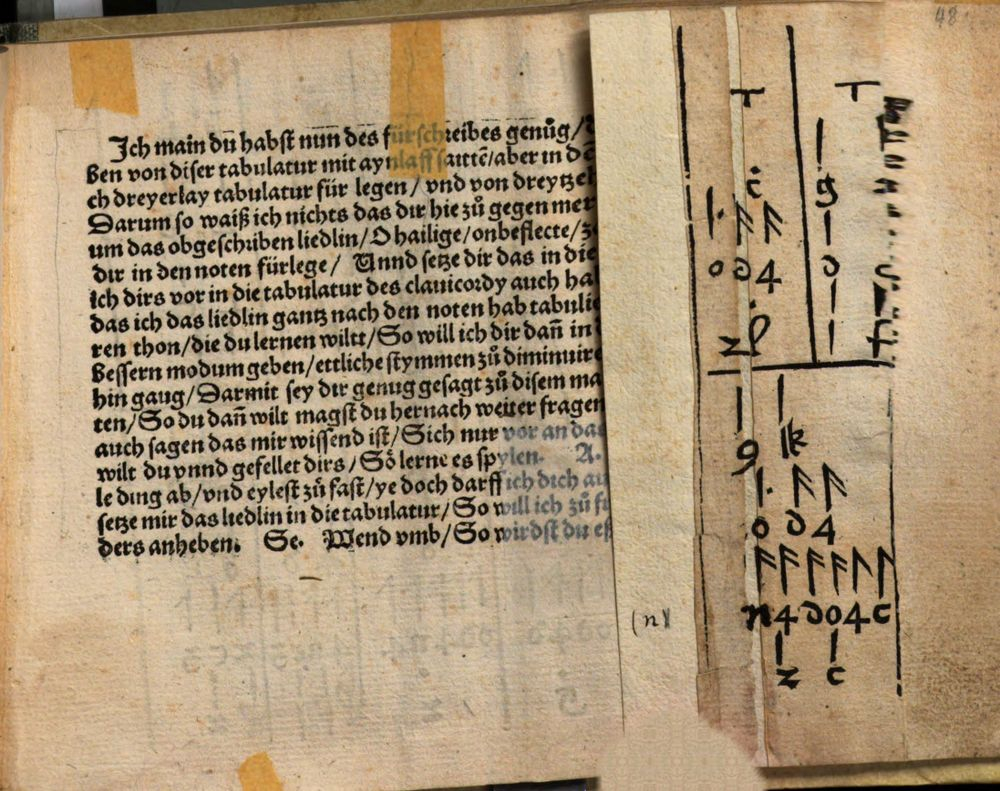 Ich main dů habst nun des fürschreibes genůg/
ben von diser tabulatur mit aynlaff saittē/aber in
ch dreyerlay tabulatur für legen/vnd von dreytzeh
Darum so waiß ich nichts das dir hie zů gegen mer
um das obgeschriben liedlin/O hailige/onbeflecte/
dir in den noten fürlege/ Vnnd setze dir das in die
ich dirs vor in die tabulatur des clauicordy auch ha
das ich das liedlin gantz nach den noten hab tabuli
ren thon/die du lernen wiltt/So will ich dir dañ in
bessern modum geben/ettliche stymmen zů diminuire
hin gaug/Darmit sey dir genug gesagt zů disem ma
ten/So du dañ wilt magst du hernach weiter fragen
auch sagen das mir wissend ist/Sich nur vor an das
wilt du vnnd gefellet dirs/So lerne es spylen. A.
le ding ab/vnd eylest zů fast/ye doch darff ich dich au
setze mir das liedlin in die tabulatur/So will ich zů
ders anheben. Se. Wend vmb/So wirdst du es
(n)
48
c g
o d 4 d
z p
9 k
o d 4
n 4 d o 4 c
z c